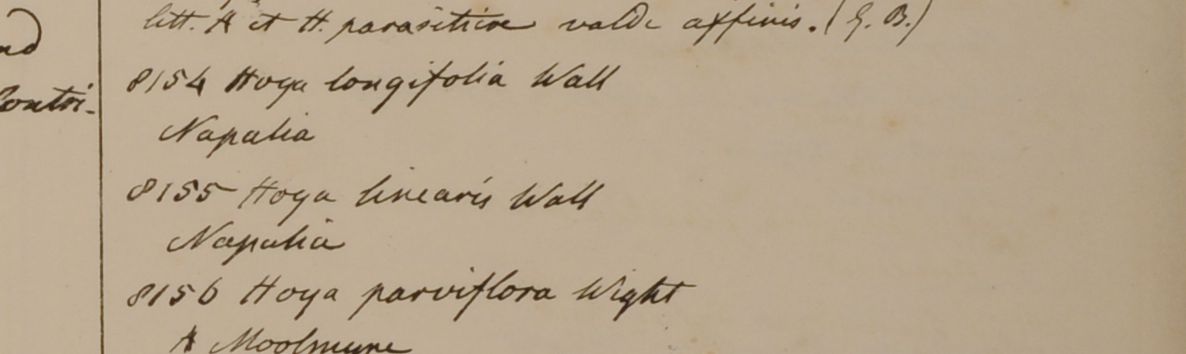 litt. A et H. parasiticae valde affinis. (G. B.)
8154 Hoya longifolia Wall
Napalia
8155 Hoya linearis Wall
Napalia
8156 Hoya parviflora Wight
A Moolmyne